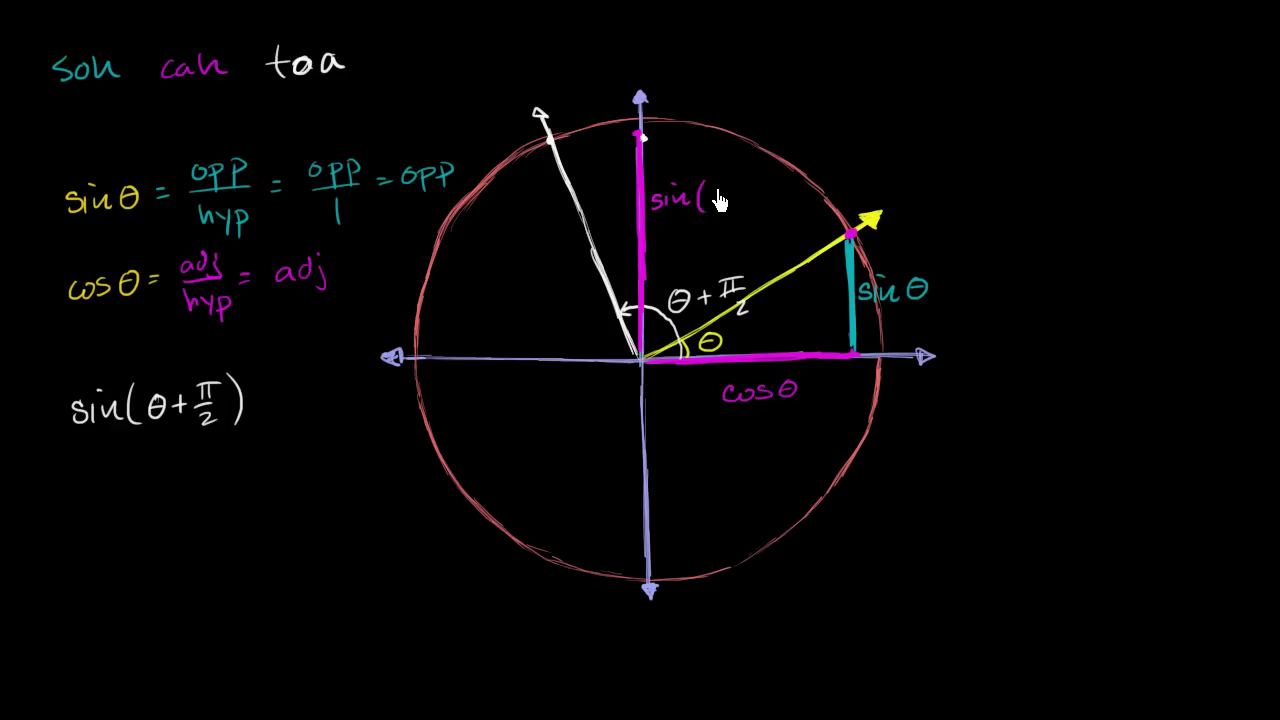 soh cah toa
sin θ = opp/hyp = opp/1 = opp
cos θ = adj/hyp = adj
sin(θ + π/2)
sin(
θ + π/2
θ
sin θ
cos θ